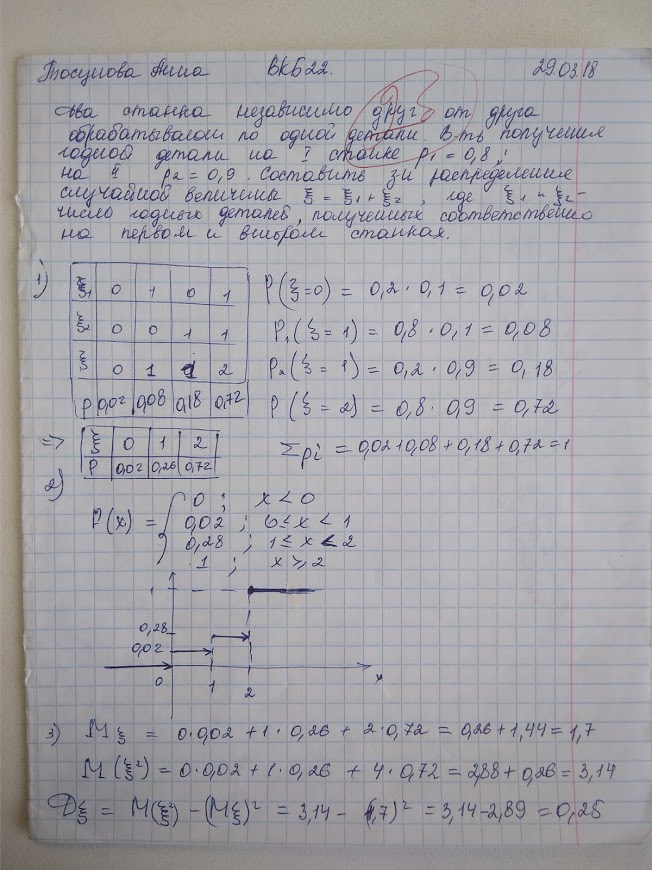 Тосунова Анна ВКБ22. 29.03.18
Два станка независимо друг от друга
обрабатывают по одной детали. В-ть получения
годной детали на I станке p₁ = 0,8;
на II p₂ = 0,9. Составить з-н распределения
случайной величины ξ = ξ₁ + ξ₂, где ξ₁ и ξ₂ -
число годных деталей, полученных соответственно
на первом и втором станках.
1) ξ₁ 0 1 0 1 P(ξ=0) = 0,2 · 0,1 = 0,02
ξ₂ 0 0 1 1 P₁(ξ=1) = 0,8 · 0,1 = 0,08
ξ 0 1 1 2 P₂(ξ=1) = 0,2 · 0,9 = 0,18
P 0,02 0,08 0,18 0,72 P(ξ=2) = 0,8 · 0,9 = 0,72
=> ξ 0 1 2 Σpi = 0,02+0,08+0,18+0,72=1
P 0,02 0,26 0,72
2)
P(x) = { 0 ; x < 0
0,02 ; 0 ≤ x < 1
0,28 ; 1 ≤ x < 2
1 ; x ≥ 2
1
0,28
0,02
0 1 2 x
3) Mξ = 0·0,02 + 1 · 0,26 + 2·0,72 = 0,26 + 1,44 = 1,7
M(ξ²) = 0·0,02 + 1·0,26 + 4·0,72 = 2,88 + 0,26 = 3,14
Dξ = M(ξ²) - (Mξ)² = 3,14 - (1,7)² = 3,14 - 2,89 = 0,25